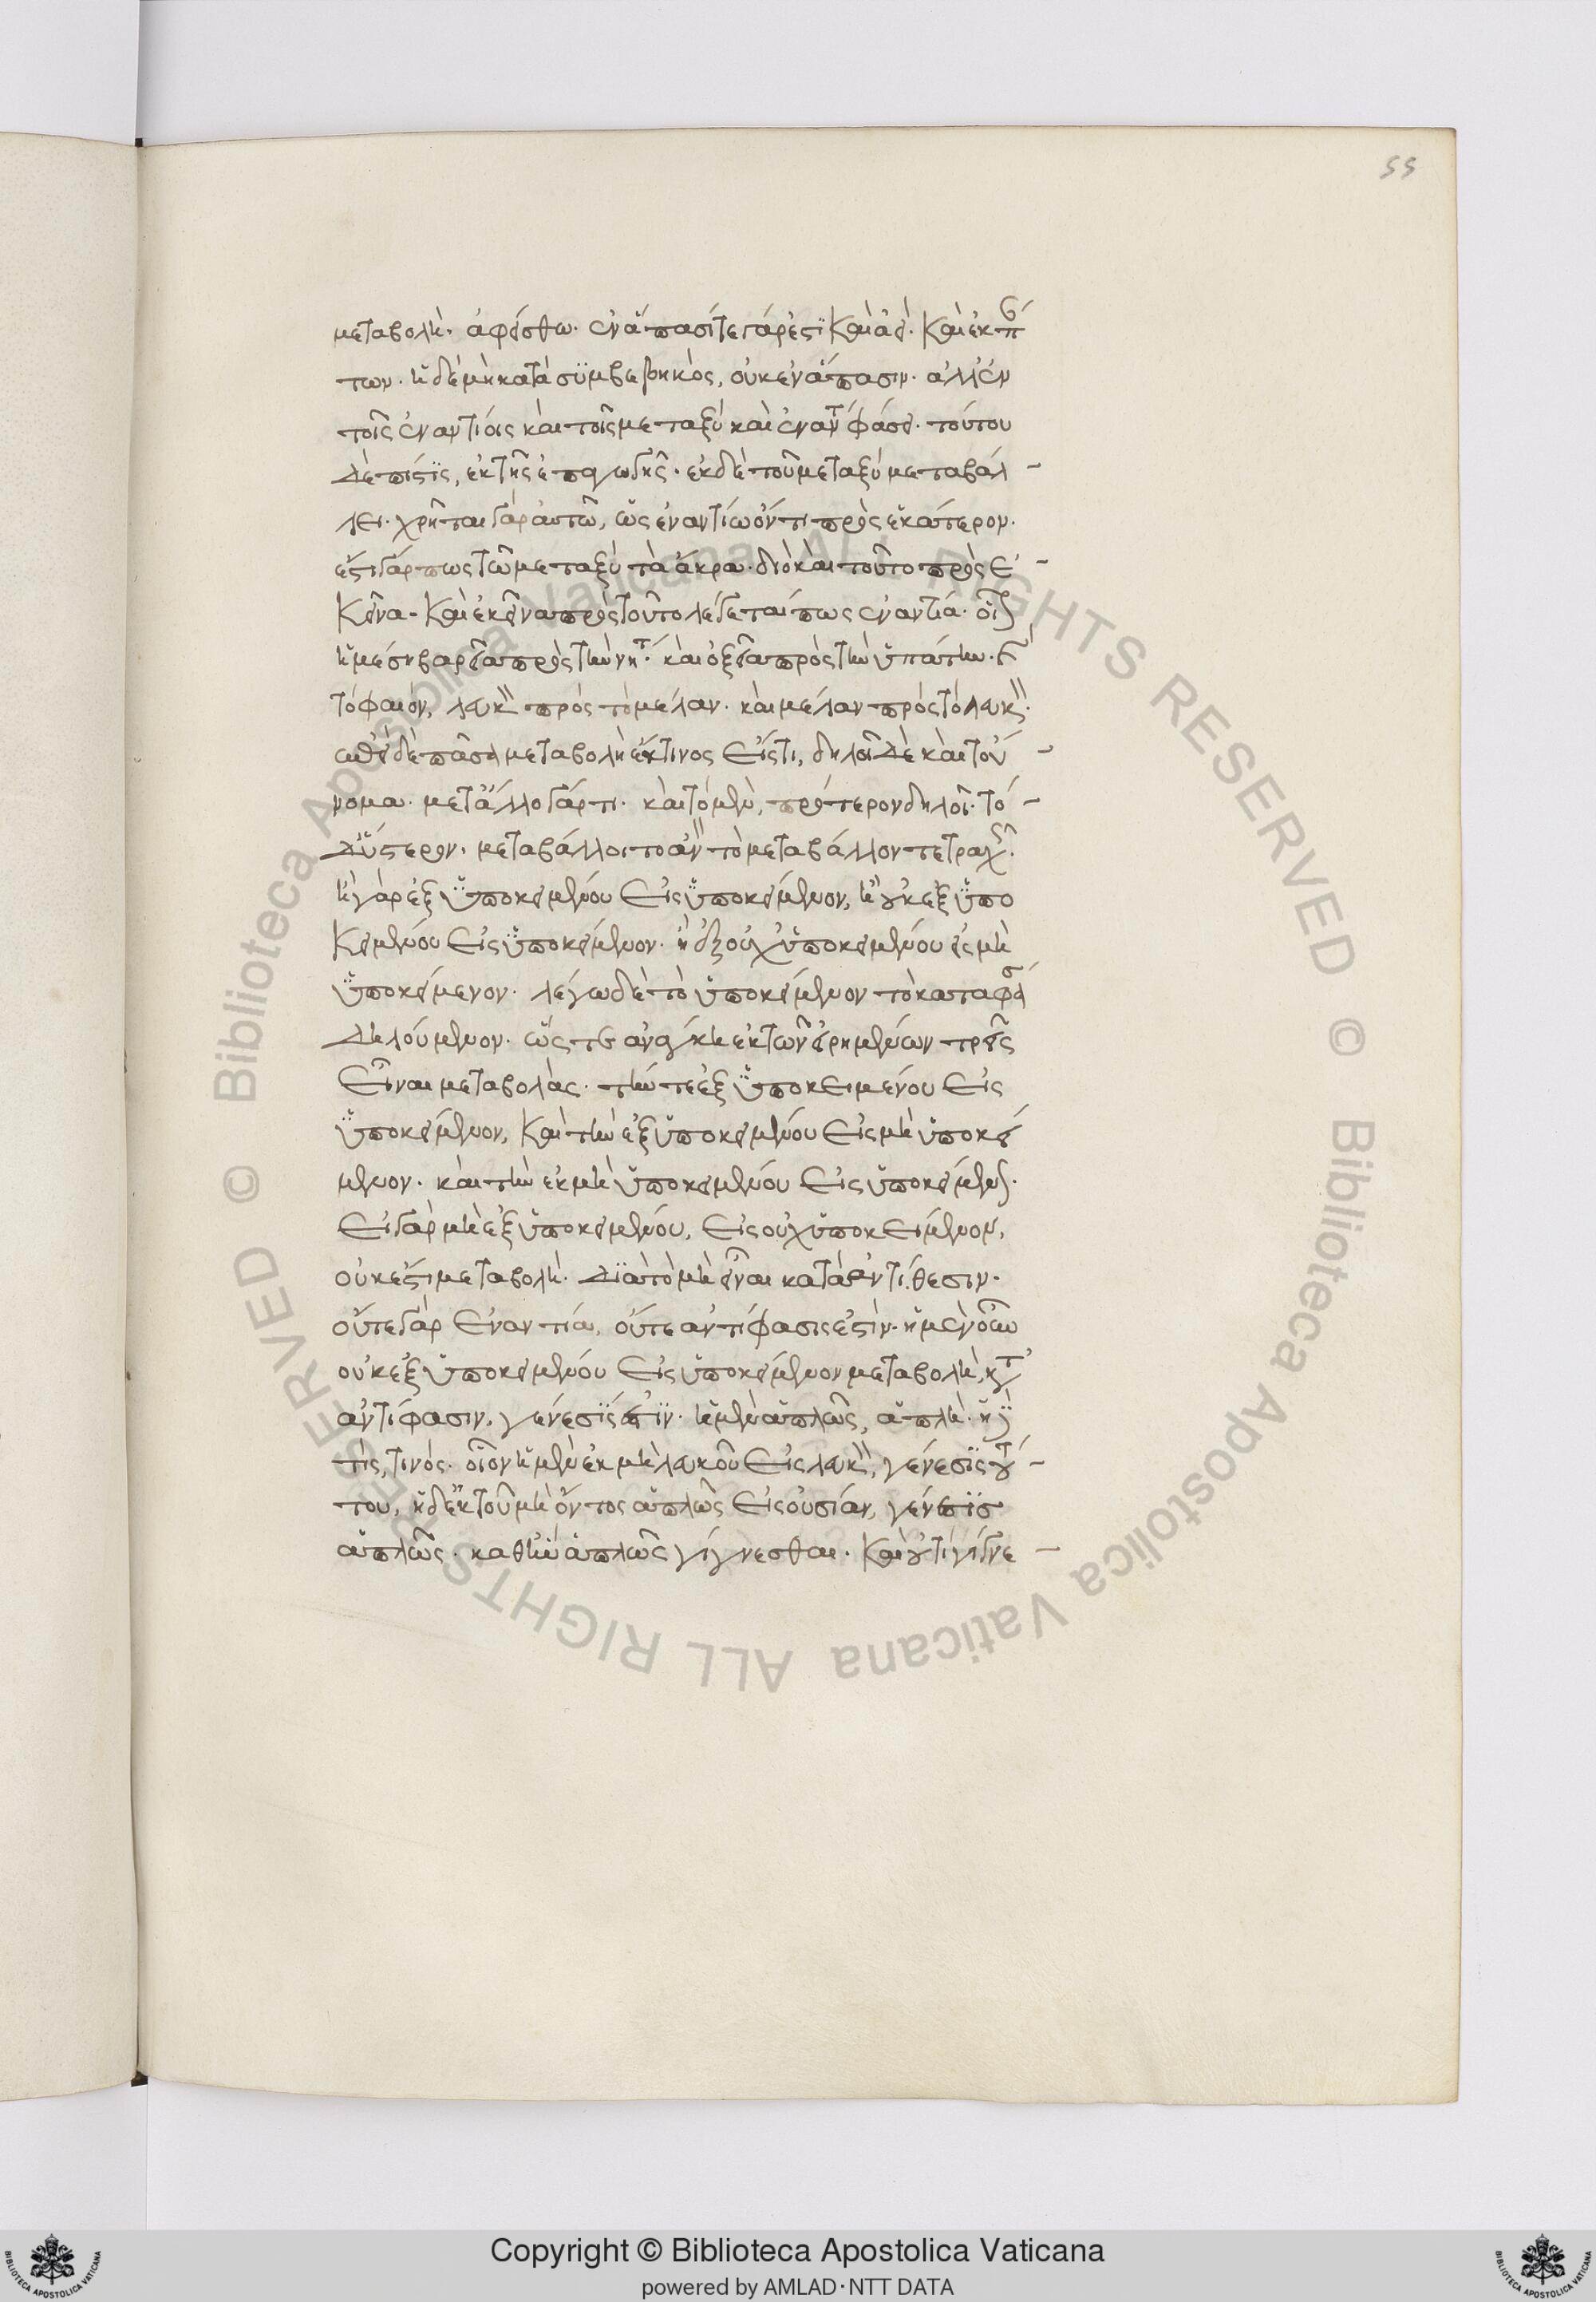 55
μεταβολὴ. ἀφείσθω. ἐν ἅπασί τε γάρ ἐστι καὶ ἀεὶ. καὶ ἐκ πάν
των. ἡ δὲ μὴ κατὰ συμβεβηκὸς, οὐκ ἐν ἅπασιν. ἀλλ' ἐν
τοῖς ἐναντίοις καὶ τοῖς μεταξὺ καὶ ἐν ἀντιφάσει. τούτου
δὲ πίστις, ἐκ τῆς ἐπαγωγῆς. ἐκ δὲ τοῦ μεταξὺ μεταβάλ-
λει. χρῆται γὰρ αὐτῶ, ὡς ἐναντίω ὄντι πρὸς ἑκάτερον.
ἔστι γάρ πως τῶ μεταξὺ τὰ ἄκρα. διὸ καὶ τοῦτο πρὸς ἐ-
κεῖνα. καὶ ἐκεῖνα πρὸς τοῦτο λέγεταί πως ἐναντία. οἷον
ἡ μέση βαρεῖα πρὸς τὴν νήτην. καὶ ὀξεῖα πρὸς τὴν ὑπάτην. καὶ
τὸ φαιὸν, λευκὸν πρὸς τὸ μέλαν. καὶ μέλαν πρὸς τὸ λευκόν.
ἐπεὶ δὲ πᾶσα μεταβολὴ ἔκ τινος εἴς τι, δηλοῖ δὲ καὶ τοὔ-
νομα. μετ' ἄλλο γάρ τι. καὶ τὸ μὲν, πρότερον δηλοῖ. τὸ-
δ' ὕστερον. μεταβάλλοι τὸ ἂν τὸ μεταβάλλον τετραχῶς.
ἢ γὰρ ἐξ ὑποκειμένου εἰς ὑποκείμενον, ἢ οὐκ ἐξ ὑπο
κειμένου εἰς ὑποκείμενον. ἢ ἐξ οὐχ ὑποκειμένου εἰς μὴ
ὑποκείμενον. λέγω δὲ τὸ ὑποκείμενον τὸ καταφάσει
δηλούμενον. ὥστε ἀνάγκη ἐκ τῶν εἰρημένων τρεῖς
εἶναι μεταβολάς. τήν τε ἐξ ὑποκειμένου εἰς
ὑποκείμενον, καὶ τὴν ἐξ ὑποκειμένου εἰς μὴ ὑποκεί
μενον. καὶ τὴν ἐκ μὴ ὑποκειμένου εἰς ὑποκείμενον.
εἰ γὰρ μὴ ἐξ ὑποκειμένου, εἰς οὐχ ὑποκείμενον,
οὐκ ἔστι μεταβολὴ. διὰ τὸ μὴ εἶναι κατὰ ἀντίθεσιν.
οὔτε γὰρ ἐναντία, οὔτε ἀντίφασις ἐστὶν. ἡ μὲν οὖν
οὐκ ἐξ ὑποκειμένου εἰς ὑποκείμενον μεταβολὴ, κατ'
ἀντίφασιν, γένεσίς ἐστιν. ἡ μὲν ἁπλῶς, ἁπλὴ. ἡ δὲ
τὶς, τινός. οἷον ἡ μὲν ἐκ μὴ λευκοῦ εἰς λευκὸν, γένεσις τού-
του, ἡ δ' ἐκ τοῦ μὴ ὄντος ἁπλῶς εἰς οὐσίαν, γένεσις
ἁπλῶς. καθ' ἣν ἁπλῶς γίγνεσθαι. καὶ οὔ τι γίγνε-
© Biblioteca Apostolica Vaticana ALL RIGHTS RESERVED © Biblioteca Apostolica Vaticana ALL RIGHTS RESERVED
Copyright © Biblioteca Apostolica Vaticana
powered by AMLAD·NTT DATA